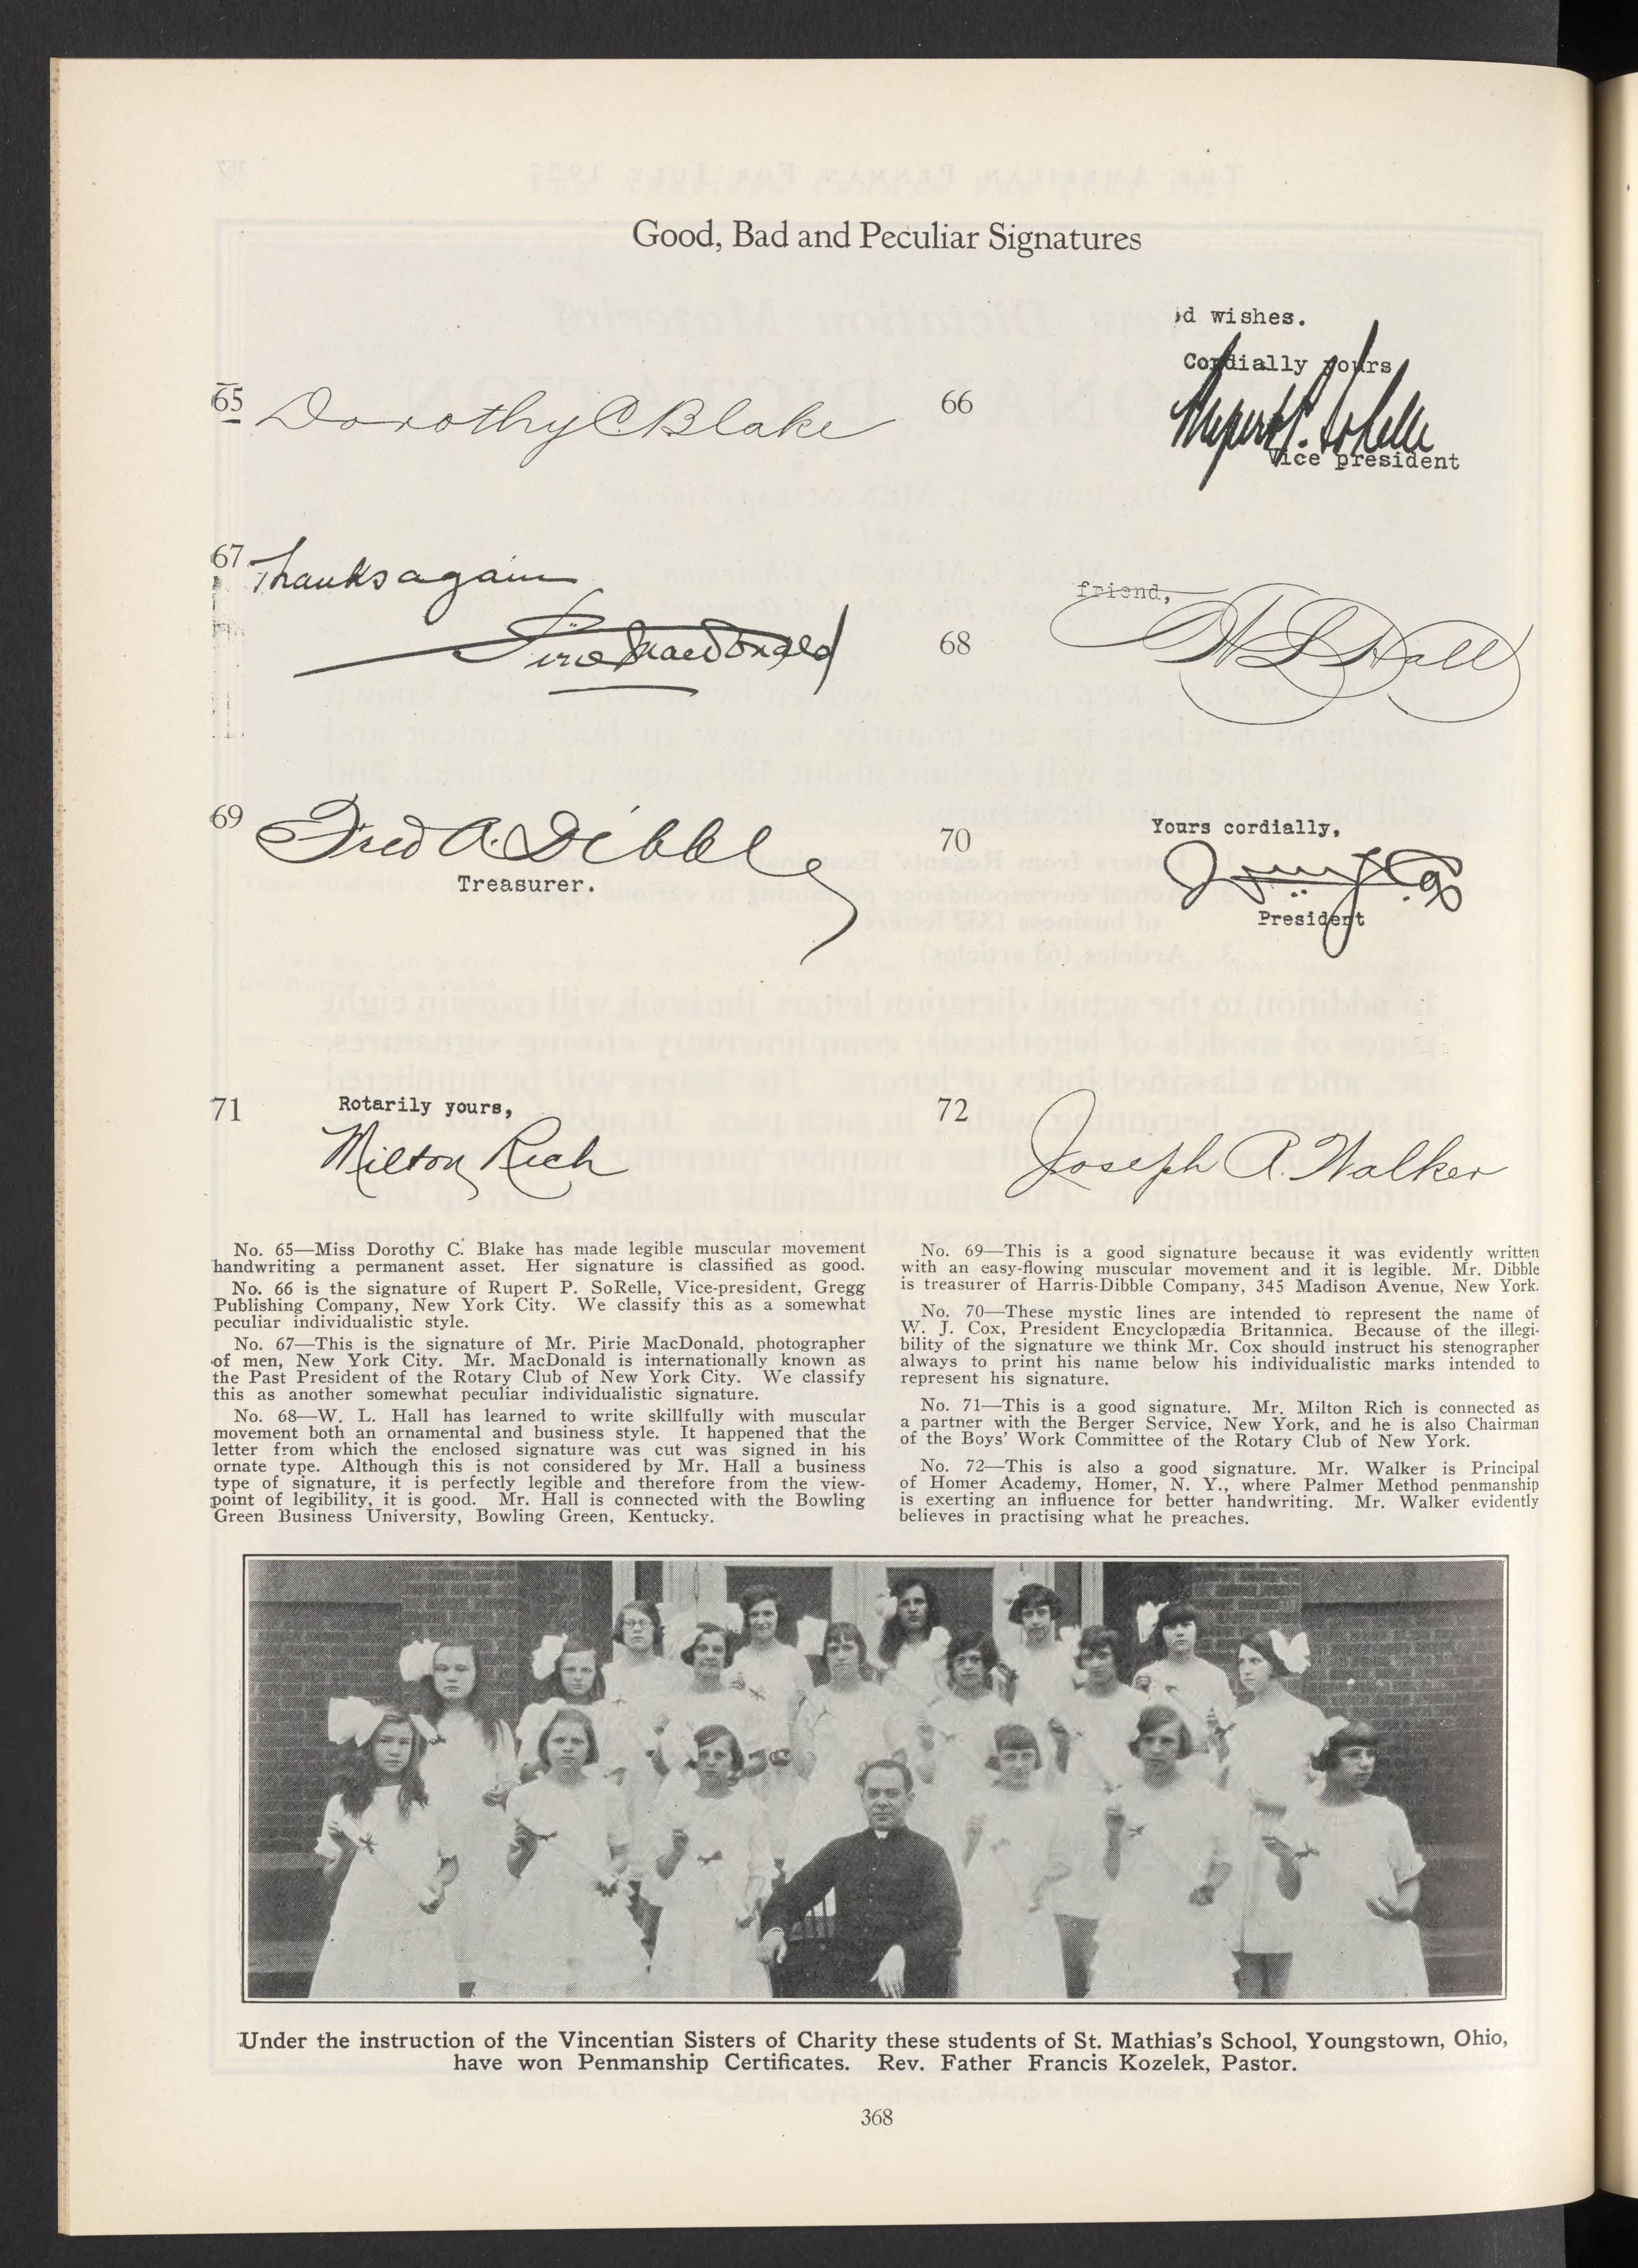 Good, Bad and Peculiar Signatures
65 Dorothy C. Blake
66
d wishes.
Cordially yours
Rupert P. SoRelle
Vice president
67 Thanks again
Pirie MacDonald
68
friend,
W L Hall
69 Fred A. Dibble
Treasurer.
70
Yours cordially,
President
71
Rotarily yours,
Milton Rich
72
Joseph A. Walker
No. 65—Miss Dorothy C. Blake has made legible muscular movement
handwriting a permanent asset. Her signature is classified as good.
No. 66 is the signature of Rupert P. SoRelle, Vice-president, Gregg
Publishing Company, New York City. We classify this as a somewhat
peculiar individualistic style.
No. 67—This is the signature of Mr. Pirie MacDonald, photographer
of men, New York City. Mr. MacDonald is internationally known as
the Past President of the Rotary Club of New York City. We classify
this as another somewhat peculiar individualistic signature.
No. 68—W. L. Hall has learned to write skillfully with muscular
movement both an ornamental and business style. It happened that the
letter from which the enclosed signature was cut was signed in his
ornate type. Although this is not considered by Mr. Hall a business
type of signature, it is perfectly legible and therefore from the view-
point of legibility, it is good. Mr. Hall is connected with the Bowling
Green Business University, Bowling Green, Kentucky.
No. 69—This is a good signature because it was evidently written
with an easy-flowing muscular movement and it is legible. Mr. Dibble
is treasurer of Harris-Dibble Company, 345 Madison Avenue, New York.
No. 70—These mystic lines are intended to represent the name of
W. J. Cox, President Encyclopædia Britannica. Because of the illegi-
bility of the signature we think Mr. Cox should instruct his stenographer
always to print his name below his individualistic marks intended to
represent his signature.
No. 71—This is a good signature. Mr. Milton Rich is connected as
a partner with the Berger Service, New York, and he is also Chairman
of the Boys' Work Committee of the Rotary Club of New York.
No. 72—This is also a good signature. Mr. Walker is Principal
of Homer Academy, Homer, N. Y., where Palmer Method penmanship
is exerting an influence for better handwriting. Mr. Walker evidently
believes in practising what he preaches.
Under the instruction of the Vincentian Sisters of Charity these students of St. Mathias's School, Youngstown, Ohio,
have won Penmanship Certificates. Rev. Father Francis Kozelek, Pastor.
368